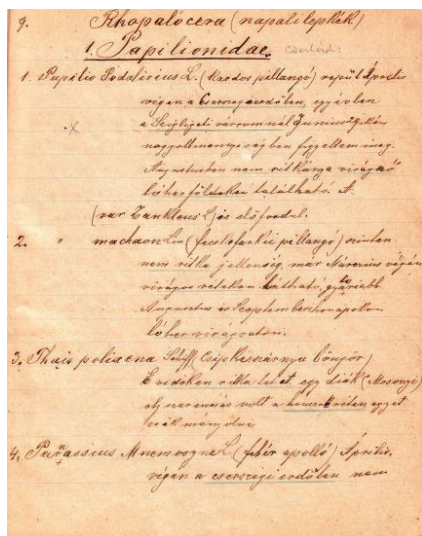 9. Rhopalocera (napali lepkék)
1. Papilionidae.
1. Papilio Podalirius L. (Kardos pillangó) repül Április
végén a Cserszegi erdőben, egy évben
a Szigligeti várromnál Junius
nagyott menyiségben figyeltem meg.
Augustusban nem ritkán a virágzó
lóher földeken található. A
(var Zankleus L) is előfordul.
2. " machaon Lin (fecskefarkú pillangó) szintén
nem ritka jelenség, már Március végén
virágos réteken látható, gyakribb
Augustus és Szeptember hónapokon
lóher virágzaton.
3. Thais polixena Schiff (Csipkeszárnyu böngör)
E vidéken ritka lelet, egy diák (Mosonyi)
oly szerencsés volt a réten egyet
csak mányolni
4. Parnassius Mnemosyne L (fehér apolló) Április
végén a cserszegi erdőben nem